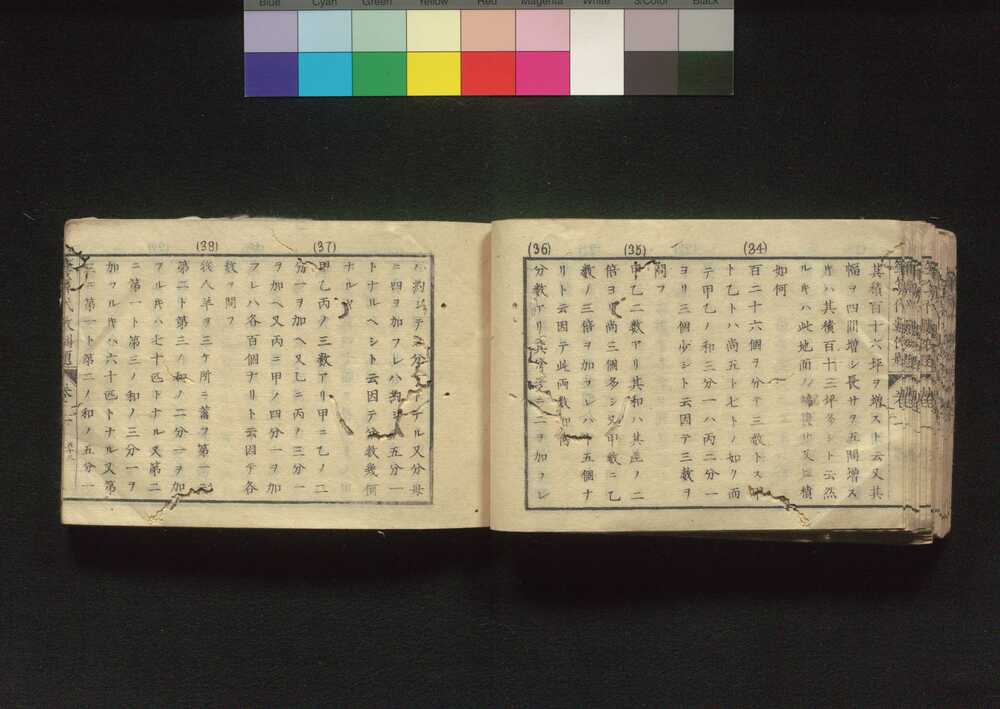 Blue Cyan Green Yellow Red Magenta White 3/Color Black
其積百十六坪ヲ増スト云又其
幅ヲ四間増シ長サヲ五間増ス
キハ其積百十三坪多シト云然
ルキハ此地面ノ 及積
如何
(34)
百二十六個ヲ分テ三数トス甲
ト乙トハ尚五ト七トノ如ク而
テ甲乙ノ和三分一ハ丙二分一
ヨリ三個少シト云因テ三数ヲ
問フ
(35)
甲乙二数アリ其和ハ其差ノ二
倍ヨリ尚三個多シ又甲数ニ乙
数ノ三倍ヲ加フレハ五個ナ
リト云因テ此両数如何
(36)
分数アリ其分子ニ二ヲ加フレ
ハ約シテ二分一トナル又分母
ニ四ヲ加フレハ約シテ五分一
トナルヘシト云因テ分数幾何
ナルヤ
(37)
甲乙丙ノ三数アリ甲ニ乙ノ二
分一ヲ加ヘ又乙ニ丙ノ三分一
ヲ加ヘ又丙ニ甲ノ四分一ヲ加
フレハ各百個ナリト云因テ各
数ヲ問フ
(38)
後人羊ヲ三ケ所ニ蓄フ第一ニ
第二ト第三ノ和ノ二分一ヲ加
フルキハ七十匹トナル又第二
ニ第一ト第三ノ和ノ三分一ヲ
加フルキハ六十匹トナル又第
三ニ第一ト第二ノ和ノ五分一